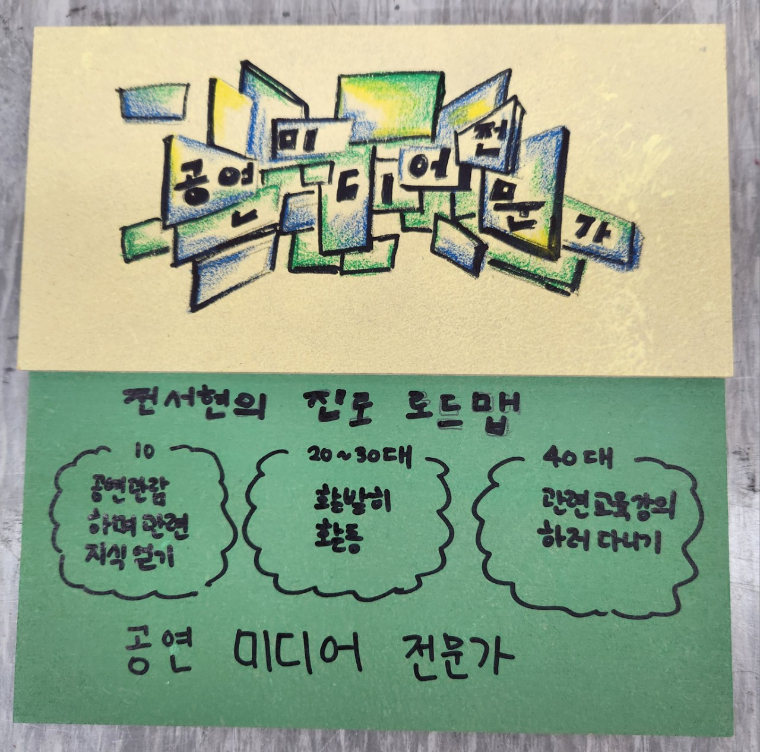 공연 미디어 전문가
전서현의 진로 로드맵
10
공연관람
하며 관련
지식 얻기
20~30대
활발히
활동
40대
관련 교육 강의
하러 다니기
공연 미디어 전문가